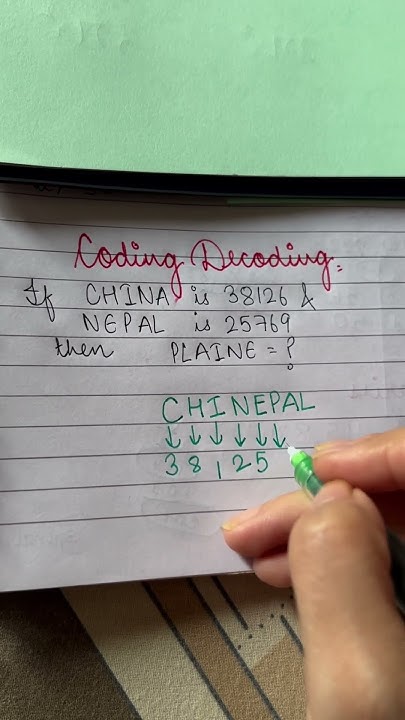 Coding Decoding:
If CHINA is 38126 &
NEPAL is 25769
then PLAINE = ?
CHINEPAL
↓↓↓↓↓↓
38125